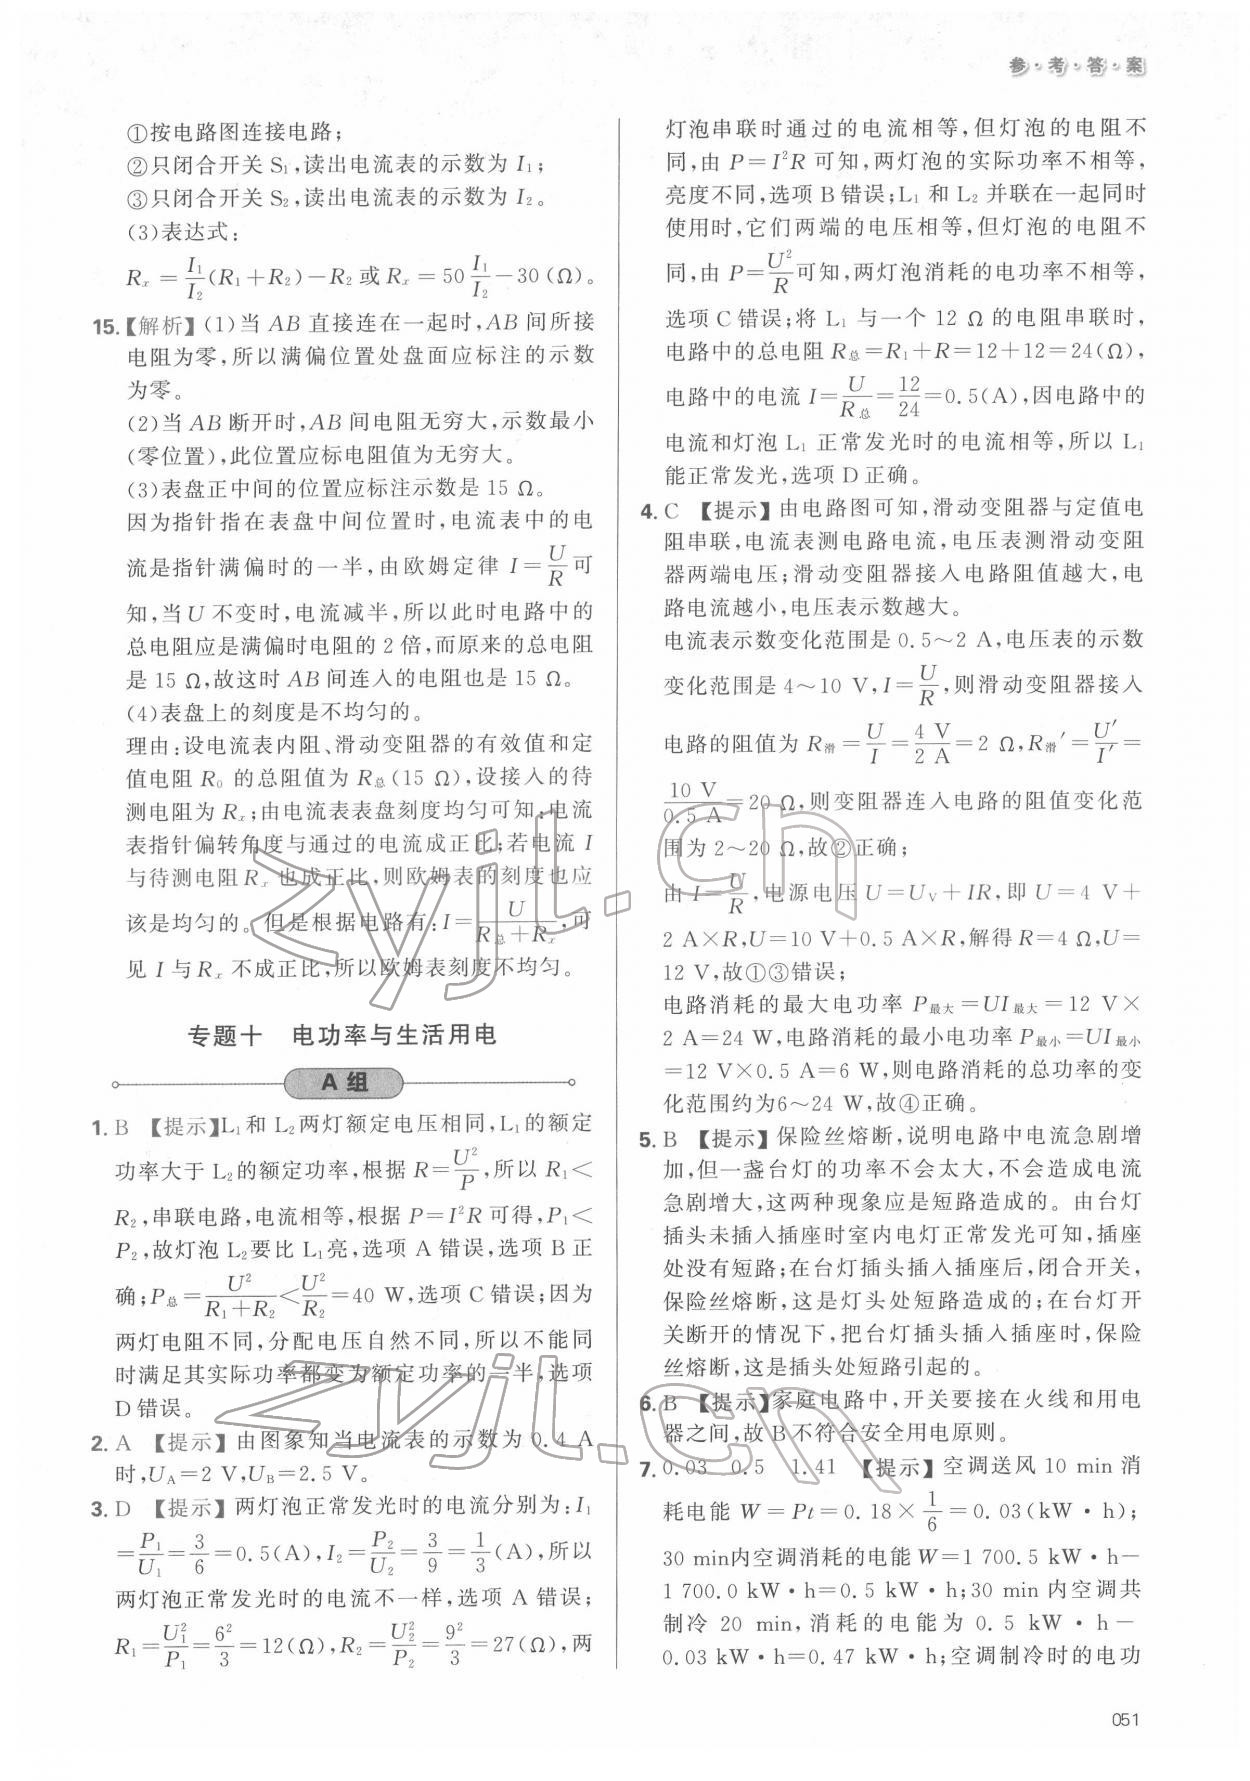 参·考·答·案
①按电路图连接电路；
②只闭合开关 S₁，读出电流表的示数为 I₁；
③只闭合开关 S₂，读出电流表的示数为 I₂。
(3)表达式：
Rₓ = I₁/I₂(R₁+R₂)−R₂ 或 Rₓ = 50 I₁/I₂ −30 (Ω)。
15.【解析】(1)当 AB 直接连在一起时，AB 间所接
电阻为零，所以满偏位置处盘面应标注的示数
为零。
(2)当 AB 断开时，AB 间电阻无穷大，示数最小
(零位置)，此位置应标电阻值为无穷大。
(3)表盘正中间的位置应标注示数是 15 Ω。
因为指针指在表盘中间位置时，电流表中的电
流是指针满偏时的一半，由欧姆定律 I=U/R可
知，当 U 不变时，电流减半，所以此时电路中的
总电阻应是满偏时电阻的 2 倍，而原来的总电阻
是 15 Ω，故这时 AB 间连入的电阻也是 15 Ω。
(4)表盘上的刻度是不均匀的。
理由：设电流表内阻、滑动变阻器的有效值和定
值电阻 R₀ 的总阻值为 R总(15 Ω)，设接入的待
测电阻为 Rₓ；由电流表表盘刻度均匀可知：电流
表指针偏转角度与通过的电流成正比；若电流 I
与待测电阻 Rₓ 也成正比，则欧姆表的刻度也应
该是均匀的。但是根据电路有：I=U/(R总+Rₓ)，可
见 I 与 Rₓ 不成正比，所以欧姆表刻度不均匀。
专题十 电功率与生活用电
A 组
1. B 【提示】L₁和 L₂两灯额定电压相同，L₁的额定
功率大于 L₂的额定功率，根据 R=U²/P，所以 R₁<
R₂，串联电路，电流相等，根据 P=I²R 可得，P₁<
P₂，故灯泡 L₂要比 L₁亮，选项 A 错误，选项 B 正
确；P总=U²/(R₁+R₂)<U²/R₂=40 W，选项 C 错误；因为
两灯电阻不同，分配电压自然不同，所以不能同
时满足其实际功率都变为额定功率的一半，选项
D 错误。
2. A 【提示】由图象知当电流表的示数为 0.4 A
时，U_A=2 V，U_B=2.5 V。
3. D 【提示】两灯泡正常发光时的电流分别为：I₁
=P₁/U₁=3/6=0.5(A)，I₂=P₂/U₂=3/9=1/3(A)，所以
两灯泡正常发光时的电流不一样，选项 A 错误；
R₁=U₁²/P₁=6²/3=12(Ω)，R₂=U₂²/P₂=9²/3=27(Ω)，两
灯泡串联时通过的电流相等，但灯泡的电阻不
同，由 P=I²R 可知，两灯泡的实际功率不相等，
亮度不同，选项 B 错误；L₁ 和 L₂ 并联在一起同时
使用时，它们两端的电压相等，但灯泡的电阻不
同，由 P=U²/R可知，两灯泡消耗的电功率不相等，
选项 C 错误；将 L₁ 与一个 12 Ω 的电阻串联时，
电路中的总电阻 R总=R₁+R=12+12=24(Ω)，
电路中的电流 I=U/R总=12/24=0.5(A)，因电路中的
电流和灯泡 L₁ 正常发光时的电流相等，所以 L₁
能正常发光，选项 D 正确。
4. C 【提示】由电路图可知，滑动变阻器与定值电
阻串联，电流表测电路电流，电压表测滑动变阻
器两端电压；滑动变阻器接入电路阻值越大，电
路电流越小，电压表示数越大。
电流表示数变化范围是 0.5～2 A，电压表的示数
变化范围是 4～10 V，I=U/R，则滑动变阻器接入
电路的阻值为 R滑=U/I=4 V/2 A=2 Ω，R滑′=U′/I′=
10 V/0.5 A=20 Ω，则变阻器连入电路的阻值变化范
围为 2～20 Ω，故②正确；
由 I=U/R，电源电压 U=U_V+IR，即 U=4 V+
2 A×R，U=10 V+0.5 A×R，解得 R=4 Ω，U=
12 V，故①③错误；
电路消耗的最大电功率 P最大=UI最大=12 V×
2 A=24 W，电路消耗的最小电功率 P最小=UI最小
=12 V×0.5 A=6 W，则电路消耗的总功率的变
化范围约为6～24 W，故④正确。
5. B 【提示】保险丝熔断，说明电路中电流急剧增
加，但一盏台灯的功率不会太大，不会造成电流
急剧增大，这两种现象应是短路造成的。由台灯
插头未插入插座时室内电灯正常发光可知，插座
处没有短路；在台灯插头插入插座后，闭合开关，
保险丝熔断，这是灯头处短路造成的；在台灯开
关断开的情况下，把台灯插头插入插座时，保险
丝熔断，这是插头处短路引起的。
6. B 【提示】家庭电路中，开关要接在火线和用电
器之间，故 B 不符合安全用电原则。
7. 0.03 0.5 1.41 【提示】空调送风 10 min 消
耗电能 W=Pt=0.18×1/6=0.03(kW·h)；
30 min内空调消耗的电能 W=1 700.5 kW·h−
1 700.0 kW·h=0.5 kW·h；30 min 内空调共
制冷 20 min，消耗的电能为 0.5 kW·h−
0.03 kW·h=0.47 kW·h；空调制冷时的电功
051
zyjl.cn
zyjl.cn